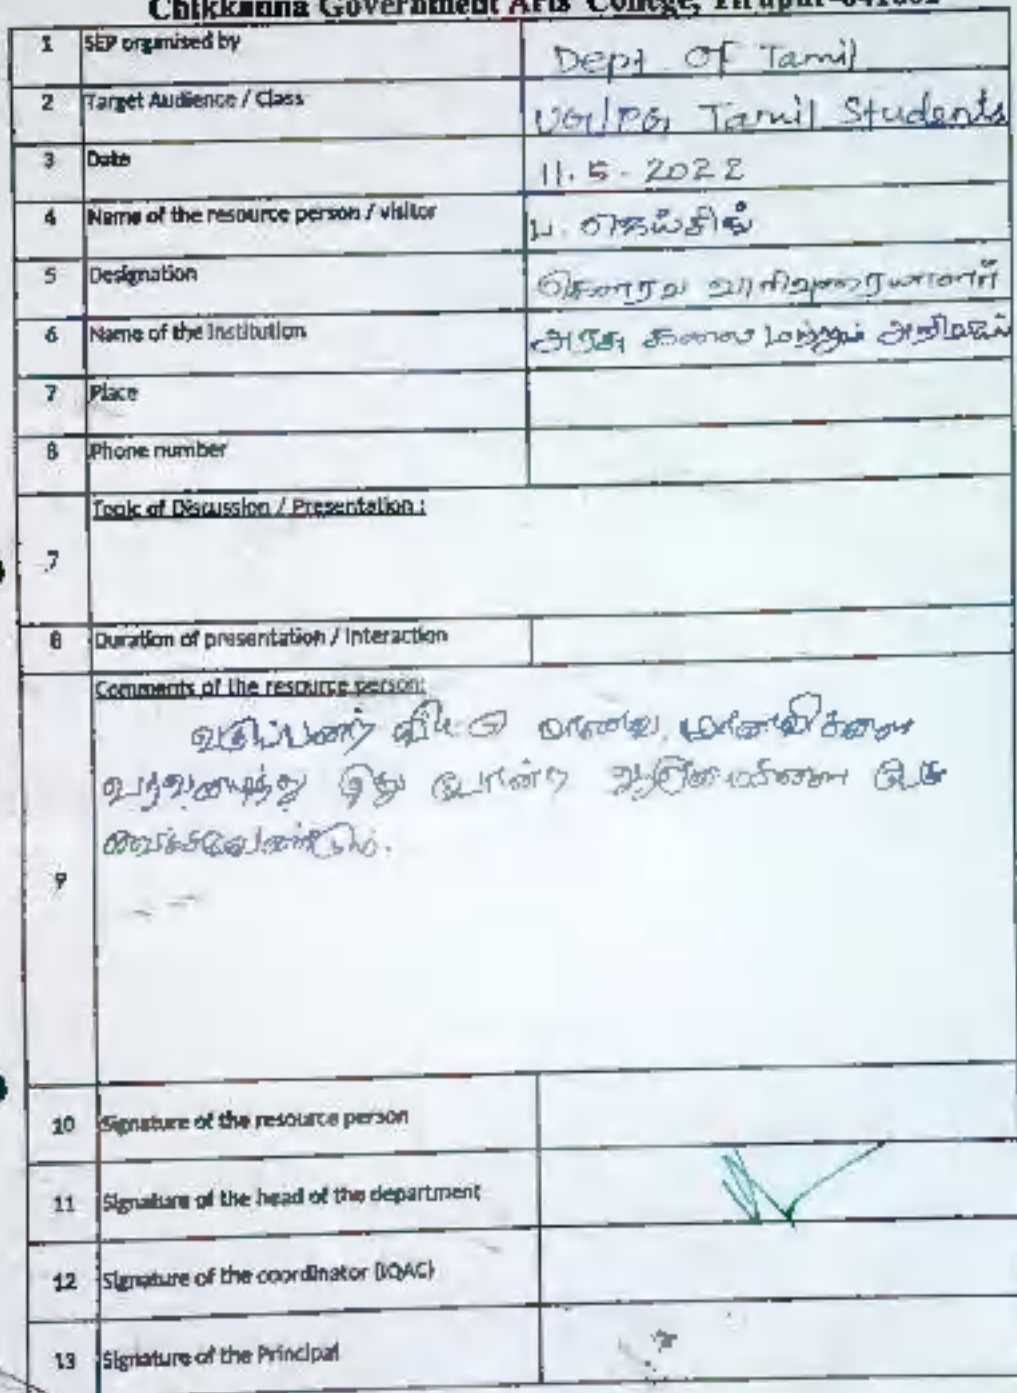 Chikkanna Government Arts College, Tirupur-641602
1 SEP organised by Dept of Tamil
2 Target Audience / Class UG/PG Tamil Students
3 Date 11.5.2022
4 Name of the resource person / visitor ப. ஜெய்சிங்
5 Designation கௌரவ விரிவுரையாளர்
6 Name of the Institution அரசு கலை மற்றும் அறிவியல்
7 Place
8 Phone number
Topic of Discussion / Presentation :
7
8 Duration of presentation / Interaction
Comments of the resource person:
மாணவ, மாணவிகளை
இது போன்ற
9
10 Signature of the resource person
11 Signature of the head of the department
12 Signature of the coordinator (IQAC)
13 Signature of the Principal